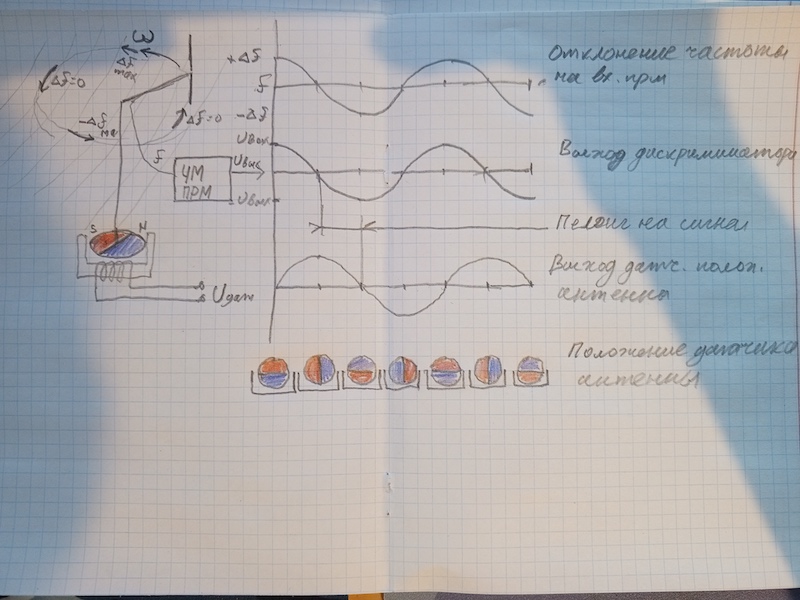 ω
Δf max
Δf=0
-Δf ma
Δf=0
f
ЧМ
ПРМ
Uвых
S N
Uдат
+Δf
f
-Δf
Uвых
Uвых
Отклонение частоты
на вх. прм
Выход дискриминатора
Пеленг на сигнал
Выход датч. полож.
антенны
Положение датчика
антенны